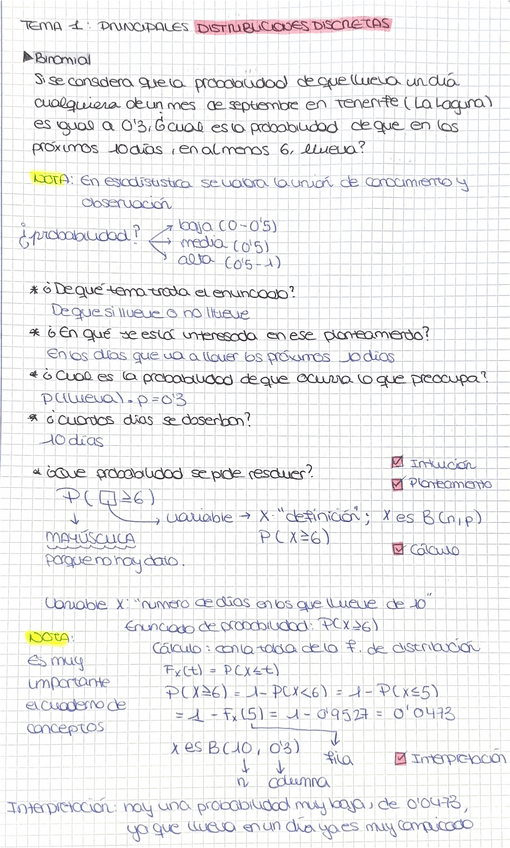 TEMA 1: PRINCIPALES DISTRIBUCIONES DISCRETAS
▶Binomial
Si se considera que la probabilidad de que llueva un día
cualquiera de un mes de septiembre en Tenerife (La Laguna)
es igual a 0'3, ¿cual es la probabilidad de que en los
próximos 10 días, en al menos 6, llueva?
NOTA: En estadística se valora la unión de conocimiento y
observación
¿probabilidad?
baja (0-0'5)
media (0'5)
alta (0'5-1)
* ¿De qué tema trata el enunciado?
De que si llueve o no llueve
* ¿En qué se está interesada en ese planteamiento?
En los días que va a llover los próximos 10 días
* ¿Cual es la probabilidad de que ocurra lo que preocupa?
P(llueva) = p = 0'3
* ¿Cuantos días se observan?
10 días
* ¿Que probabilidad se pide resolver?
☑ Intuición
☑ Planteamiento
P(□≥6)
variable → X: "definición"; X es B(n,p)
MAYÚSCULA
P(X≥6)
porque no hay dato.
☑ Cálculo
Variable X: "número de días en los que llueve de 10"
Enunciado de probabilidad: P(X≥6)
NOTA:
Es muy
importante
el cuaderno de
conceptos
Cálculo: con la tabla de la f. de distribución
Fx(t) = P(X≤t)
P(X≥6) = 1-P(X<6) = 1-P(X≤5)
= 1-Fx(5) = 1-0'9527 = 0'0473
X es B(10, 0'3) fila
☑ Interpretación
n columna
Interpretación: hay una probabilidad muy baja, de 0'0473,
ya que llueva en un día ya es muy complicado